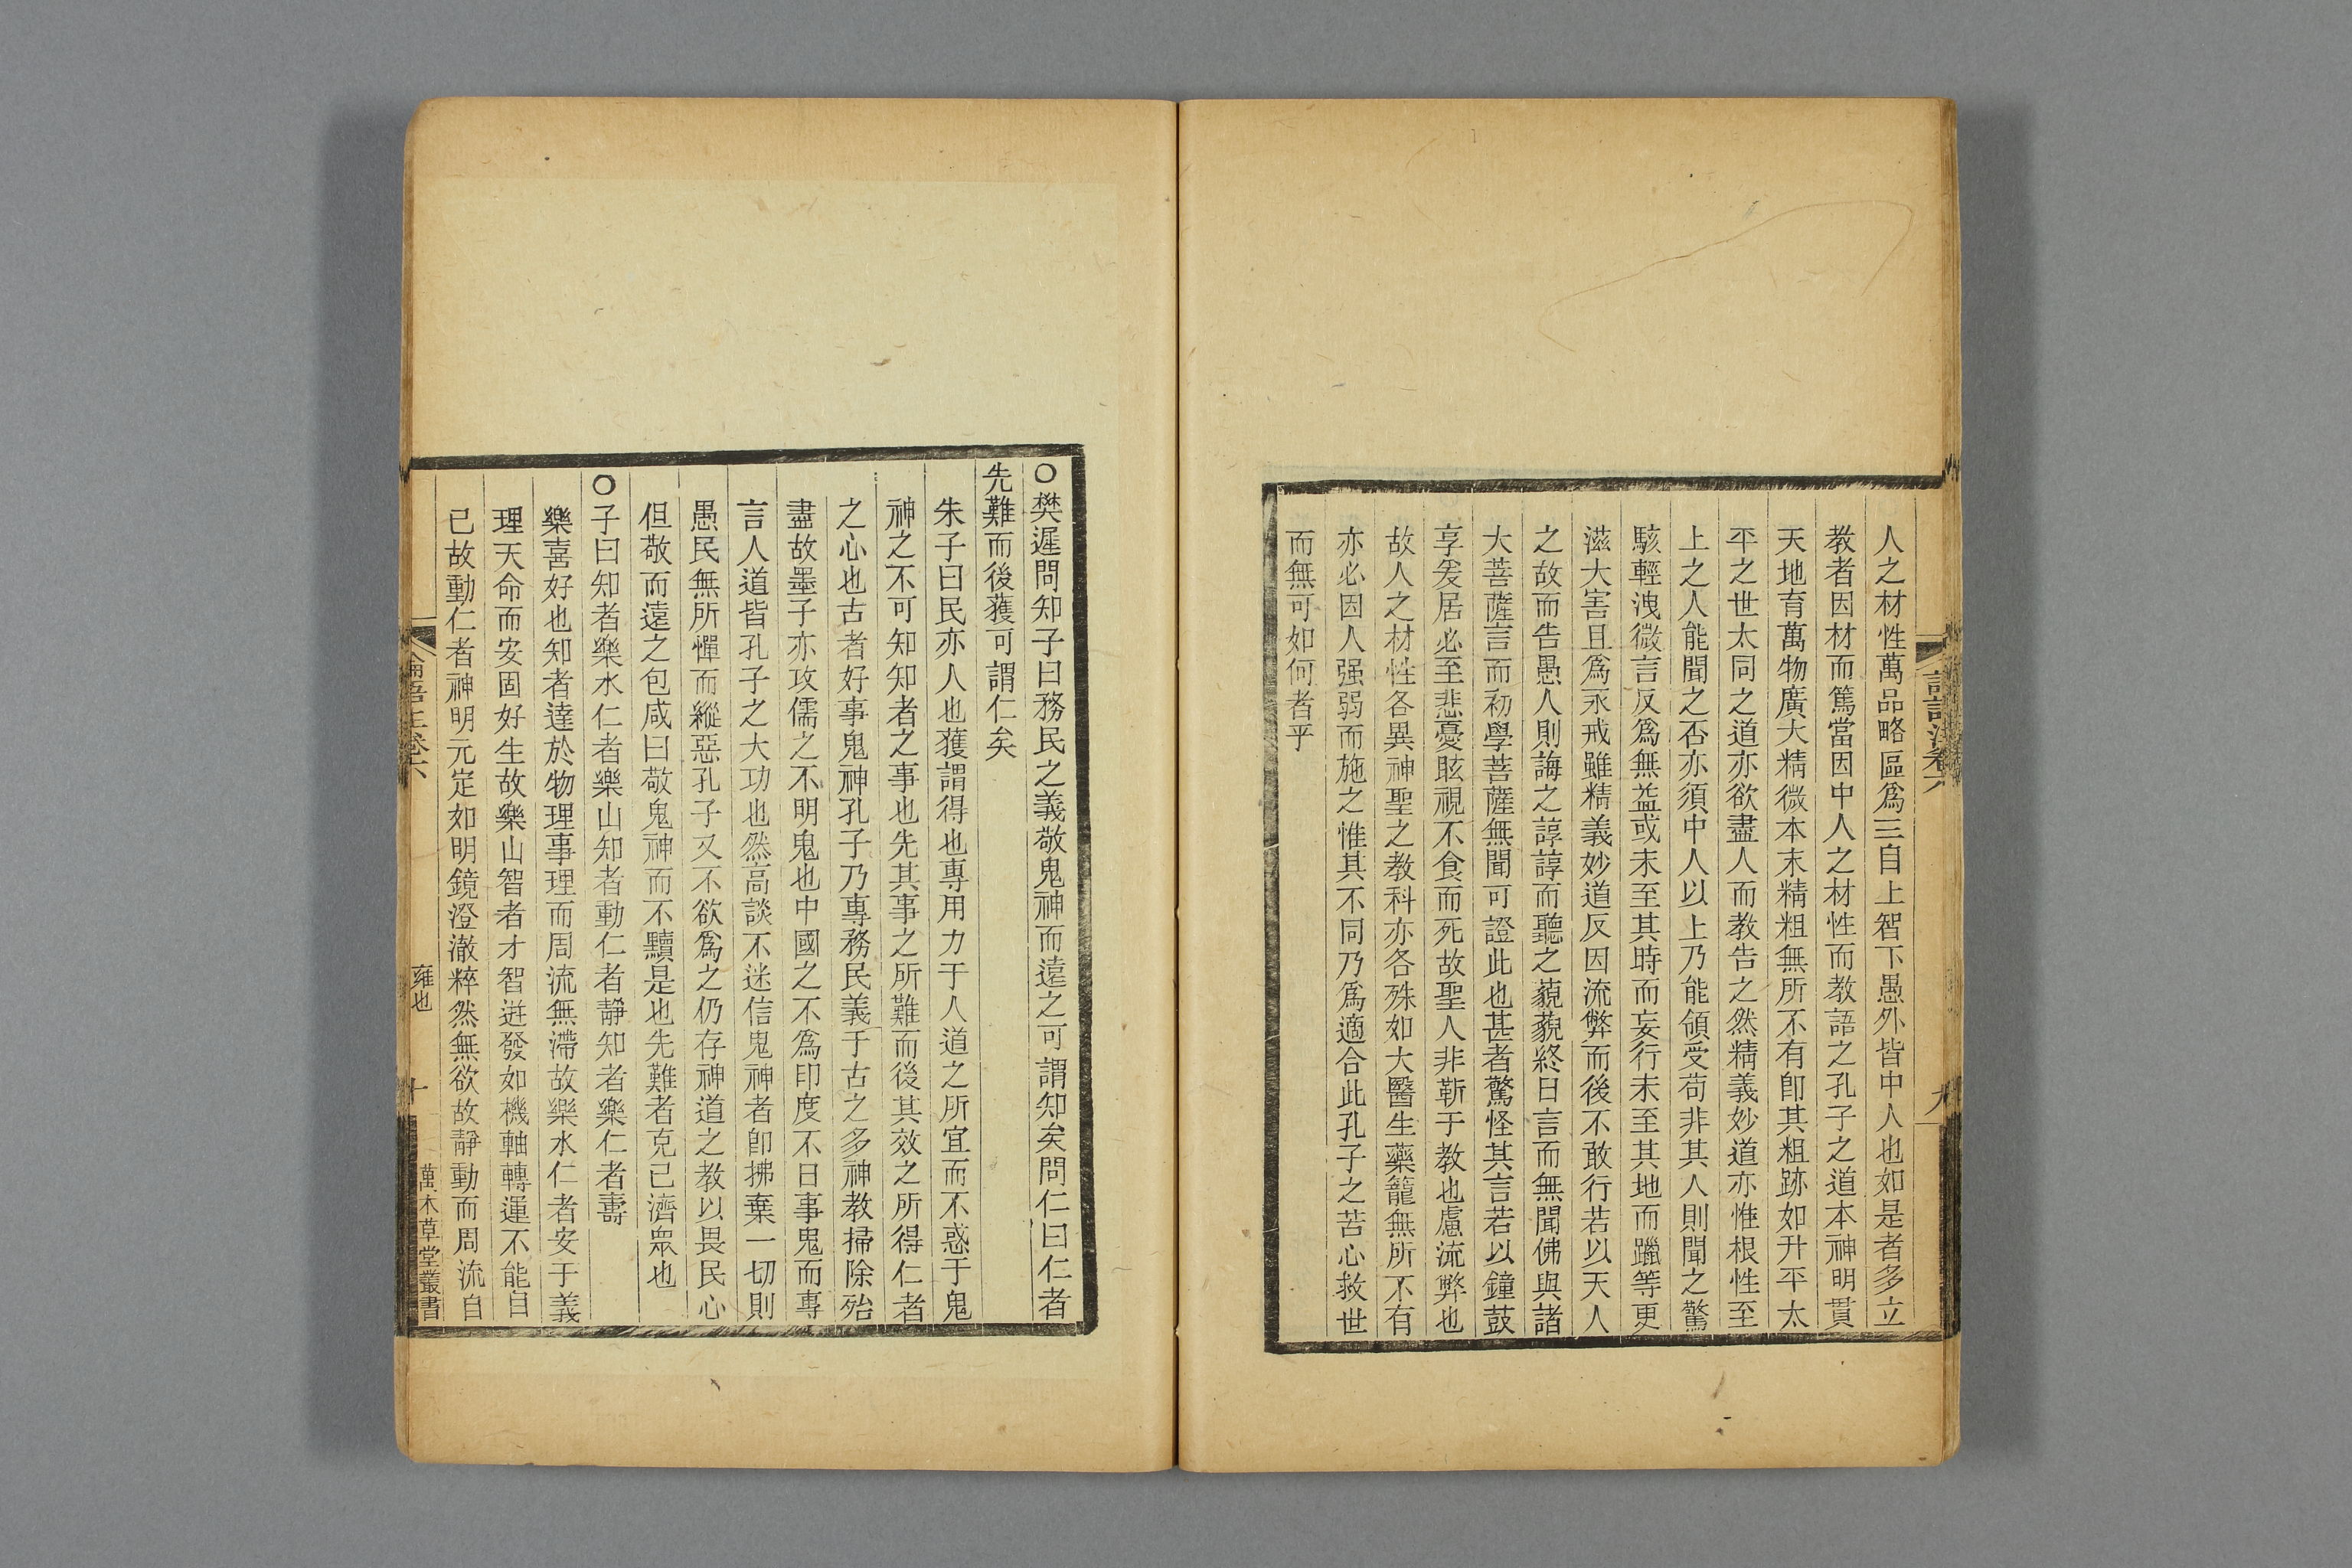 人之材性萬品略區爲三自上智下愚外皆中人也如是者多立
教者因材而篤當因中人之材性而教語之孔子之道本神明貫
天地育萬物廣大精微本末精粗無所不有卽其粗跡如升平太
平之世太同之道亦欲盡人而教告之然精義妙道亦惟根性至
上之人能聞之否亦須中人以上乃能領受苟非其人則聞之驚
駭輕洩微言反爲無益或未至其時而妄行未至其地而躐等更
滋大害且爲永戒雖精義妙道反因流弊而後不敢行若以天人
之故而告愚人則誨之諄諄而聽之藐藐終日言而無聞佛與諸
大菩薩言而初學菩薩無聞可證此也甚者驚怪其言若以鐘鼓
享爰居必至悲憂眩視不食而死故聖人非靳于教也慮流弊也
故人之材性各異神聖之教科亦各殊如大醫生藥籠無所不有
亦必因人强弱而施之惟其不同乃爲適合此孔子之苦心救世
而無可如何者乎
九
○樊遲問知子曰務民之義敬鬼神而遠之可謂知矣問仁曰仁者
先難而後獲可謂仁矣
朱子曰民亦人也獲謂得也專用力于人道之所宜而不惑于鬼
神之不可知知者之事也先其事之所難而後其效之所得仁者
之心也古者好事鬼神孔子乃專務民義于古之多神教掃除殆
盡故墨子亦攻儒之不明鬼也中國之不爲印度不日事鬼而專
言人道皆孔子之大功也然高談不迷信鬼神者卽拂棄一切則
愚民無所憚而縱惡孔子又不欲爲之仍存神道之教以畏民心
但敬而遠之包咸曰敬鬼神而不黷是也先難者克己濟衆也
○子曰知者樂水仁者樂山知者動仁者靜知者樂仁者壽
樂喜好也知者達於物理事理而周流無滯故樂水仁者安于義
理天命而安固好生故樂山智者才智迸發如機軸轉運不能自
已故動仁者神明元定如明鏡澄澈粹然無欲故靜動而周流自
雍也 十 萬木草堂叢書